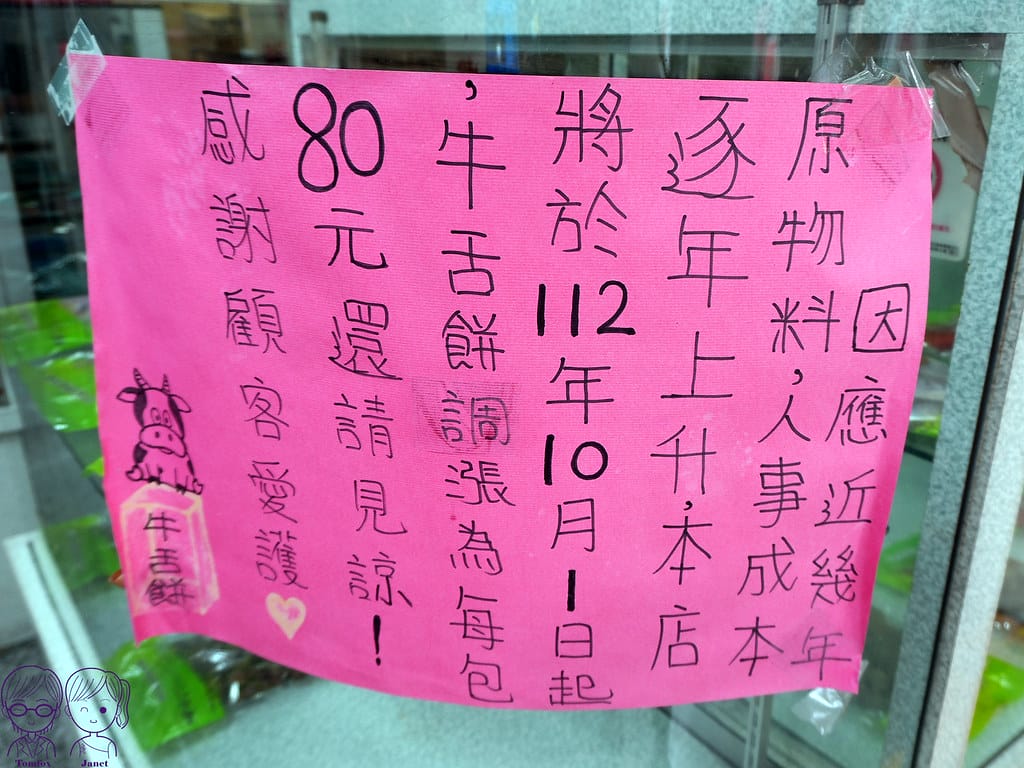 因應近幾年
原物料,人事成本
逐年上升,本店
將於112年10月1日起
,牛舌餅調漲為每包
80元還請見諒!
感謝顧客愛護
牛舌餅
Tomfox
Janet